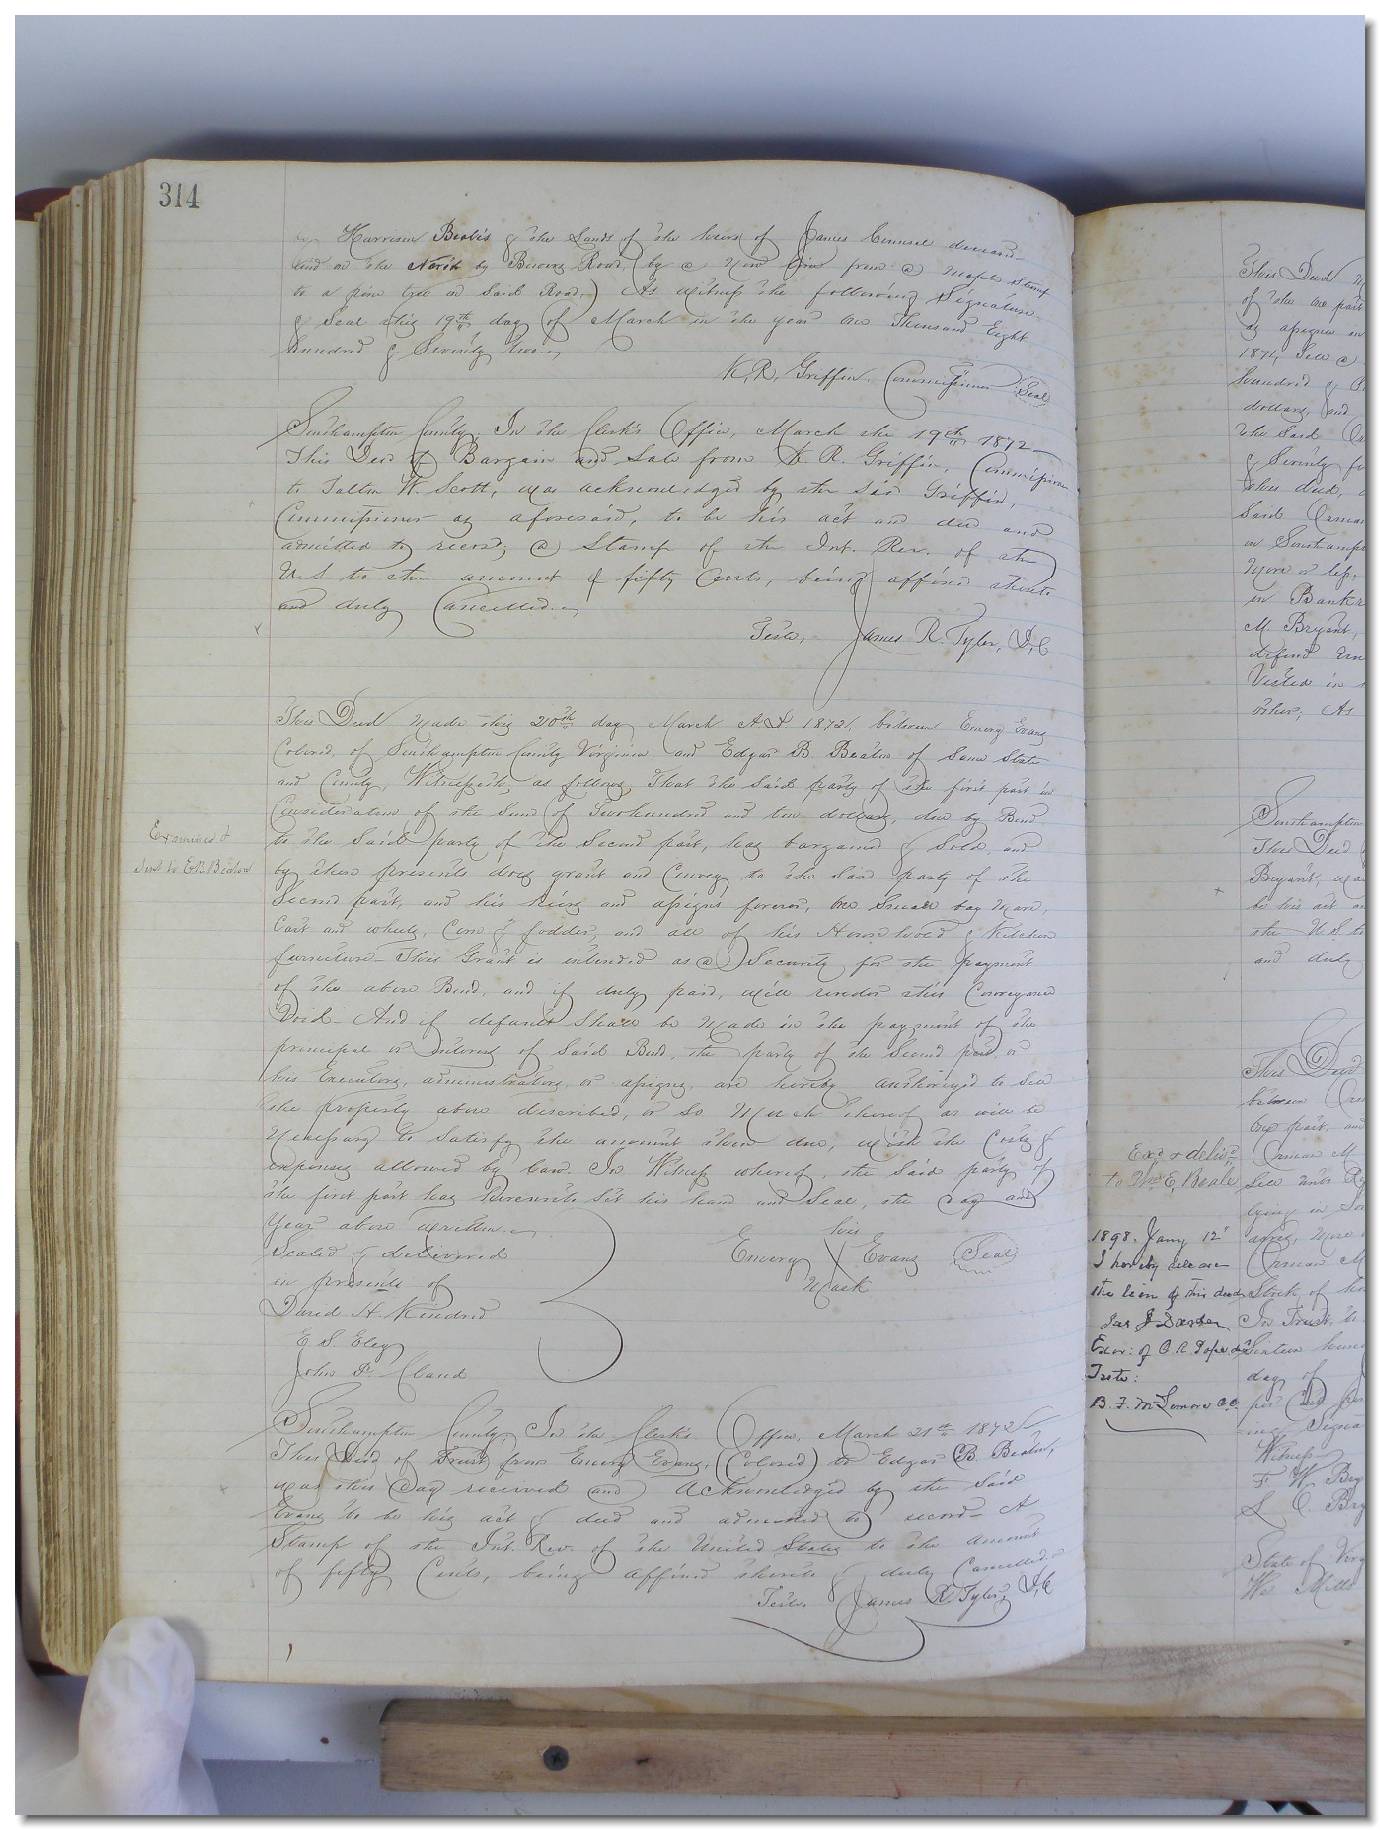 314
by Harrison Beale's & the Lands of the heirs of James Counsel deceased
and on the North by Road, (by a New line from a maple stump
to a pine tree on Said Road.) As Witness the following Signature
& Seal this 19th day of March in the year One Thousand Eight
hundred & Seventy two.
K. R. Griffin Commissioner Seal
Southampton County, In the Clerk's Office, March the 19th 1872
This Deed of Bargain and Sale from K. R. Griffin, Commissioner
to W. Scott, was acknowledged by the said Griffin,
Commissioner as aforesaid, to be his act and deed and
admitted to record; a Stamp of the Int. Rev. of the
U.S to the amount of fifty Cents, being affixed thereto
and duly Cancelled.
Teste, James R. Tyler, D,C
This Deed Made this 20th day March A D 1872, between Emery Evans
Colored, of Southampton County Virginia and Edgar B. Beaton of Same State
and County, Witnesseth, as follows, That the Said party of the first part in
Consideration of the Sum of Two hundred and ten dollars, due by Bond
to the Said party of the Second part, has bargained & Sold, and
by these presents does grant and Convey to the Said party of the
Second part, and his heirs and assigns forever, One Small bay Mare,
Cart and wheels, Corn & fodder, and all of his House hold & Kitchen
furniture- This Grant is intended as a Security for the payment
of the above Bond, and if duly paid, will render this Conveyance
Void- And if default Shall be Made in the payment of the
principal or Interest of Said Bond, the party of the Second part, or
his Executors, administrators, or assigns, are hereby authorized to Sell
the property above described, or So Much thereof as will be
Necessary to Satisfy the amount then due, with the Costs &
expenses allowed by Law. In Witness whereof, the Said party of
the first part has hereunto Set his hand and Seal, the day and
Year above written.
Sealed & delivered
in presents of
David H. Kindred
E S. Eley
John P. Claud
his
Emery X Evans Seal
Mark
Southampton County, In the Clerk's Office, March 21st 1872
This Deed of Trust from Emery Evans, (Colored) to Edgar B. Beaton,
was this day received and Acknowledged by the Said
Evans to be his act & deed and admitted to record- A
Stamp of the Int. Rev. of the United States to the amount
of fifty Cents, being affixed thereto & duly Cancelled.
Teste. James R. Tyler, D,C
Examined &
to E.B. Beaton
This Deed
of the one part
as assignee in
1871, Sell a
hundred &
dollars, and
the Said
& Seventy
this deed,
Said Orman
in Southampton
More or less,
in Bankr
M. Bryant,
defend
Vested in
other, As
Southampton
This Deed
Bryant, was
be his act an
the U.S. to
and duly
This Deed
between
one part, and
Orman M
Sell unto
lying in Sou
acres, More
Orman M
Stock of
In Trust, to
Sixteen hund
day of
Signa
Witness
F W Bry
L C. Bry
State of Virg
We Mills
Exd & delivd
to Wm E, Beale
1898. Jany 12"
I hereby release
the lien of this deed
Exor: of
Teste:
B. F. McLemore C.C.